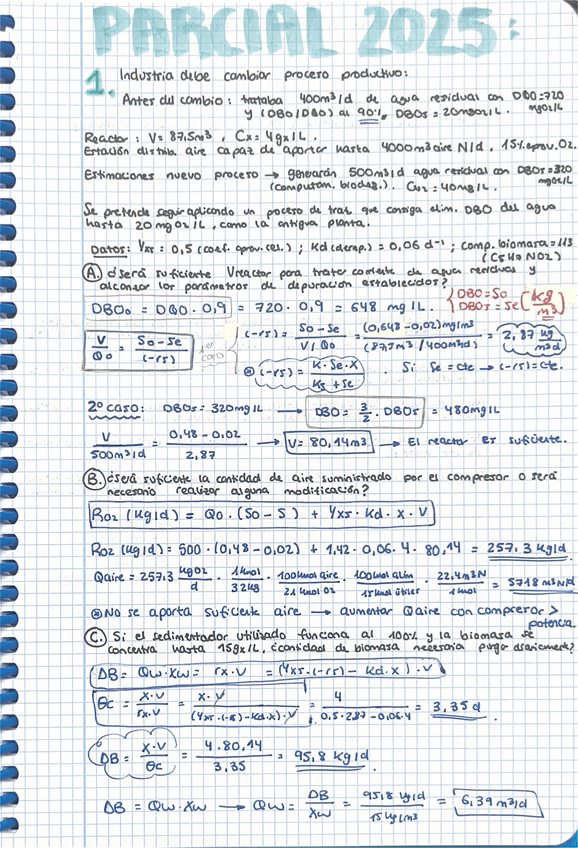 PARCIAL 2025:
1. Industria debe cambiar proceso productivo:
Antes del cambio: trataba 400m³/d de agua residual con DQO=720 mgO2/L
y (DBO/DQO) al 90%, DBOs = 20mgO2/L.
Reactor: V= 87,5m³, Cx=4gx/L.
Estación distrib. aire capaz de aportar hasta 4000m³aire N/d, 15% aprov. O2.
Estimaciones nuevo proceso → generarán 500m³/d agua residual con DBO5=320 mgO2/L
(computam. biodeg.). = 40mg/L.
Se pretende seguir aplicando un proceso de trat. que consiga elim. DBO del agua
hasta 20mgO2/L, como la antigua planta.
Datos: Yxs = 0,5 (coef. aprov. cel.); Kd (decrep.) = 0,06 d⁻¹; comp. biomasa = 113
(C5H7NO2)
A. ¿Será suficiente Vreactor para tratar corriente de agua residual y
alcanzar los parámetros de depuración establecidos?
{ DBO = So
DBOs = Se (kg/m³)
DBO0 = DQO · 0,9 = 720 · 0,9 = 648 mg/L.
V/Q0 = So-Se/(-rs)
1er caso
(-rs) = So-Se/V/Q0 = (0,648-0,02)mg/m³/(87,5m³/400m³/d) = 2,87 kg/m³d
⊛ (-rs) = K·Se·X/Ks+Se . Si Se = cte → (-rs)=cte.
2º caso: DBO5 = 320mg/L → DBO = 3/2 · DBO5 = 480mg/L
V/500m³/d = 0,48-0,02/2,87 → V= 80,14m³ → El reactor es suficiente.
B. ¿Será suficiente la cantidad de aire suministrado por el compresor o será
necesario realizar alguna modificación?
RO2 (kg/d) = Q0 · (So-S) + Yxs · Kd · x · V
RO2 (kg/d) = 500 · (0,48-0,02) + 1,42 · 0,06 · 4 · 80,14 = 257,3 kg/d
Qaire = 257,3 kgO2/d · 1kmol/32kg · 100kmol aire/21kmol O2 · 100kmol alim/15kmol útiles · 22,4m³N/1kmol = 5718m³N/d
⊛ No se aporta suficiente aire → aumentar Qaire con compresor > potencia.
C. Si el sedimentador utilizado funciona al 100% y la biomasa se
concentra hasta 15gx/L, ¿cantidad de biomasa necesaria purgar diariamente?
DB = Qw·Xw = rx·V = (Yxs·(-rs) - Kd·x)·V
θc = x·V/rx·V = x·V/(Yxs·(-rs)-Kd·x)·V = 4/0,5·2,87-0,06·4 = 3,35d.
DB = x·V/θc = 4·80,14/3,35 = 95,8kg/d.
DB = Qw·Xw → Qw = DB/Xw = 95,8 kg/d/15kg/m³ = 6,39m³/d